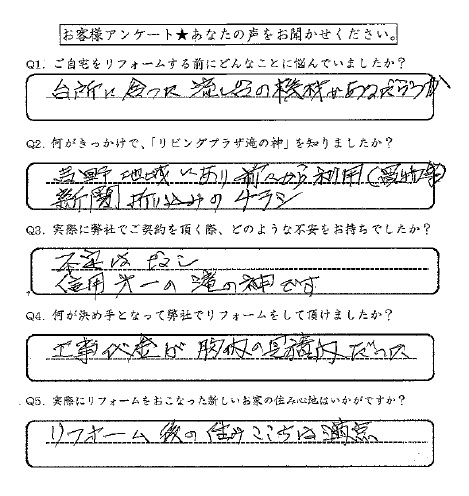 お客様アンケート★あなたの声をお聞かせください。
Q1. ご自宅をリフォームする前にどんなことに悩んでいましたか?
台所に合った流し台の機種があるだろうか
Q2. 何がきっかけで、「リビングプラザ滝の神」を知りましたか?
吉野地域にあり前から利用(
新聞折り込みのチラシ
Q3. 実際に弊社でご契約を頂く際、どのような不安をお持ちでしたか?
不安はなし
信用第一の滝の神です
Q4. 何が決め手となって弊社でリフォームをして頂けましたか?
工事代金が予算の見積だった
Q5. 実際にリフォームをおこなった新しいお家の住み心地はいかがですか?
リフォーム後の住みここちは満点